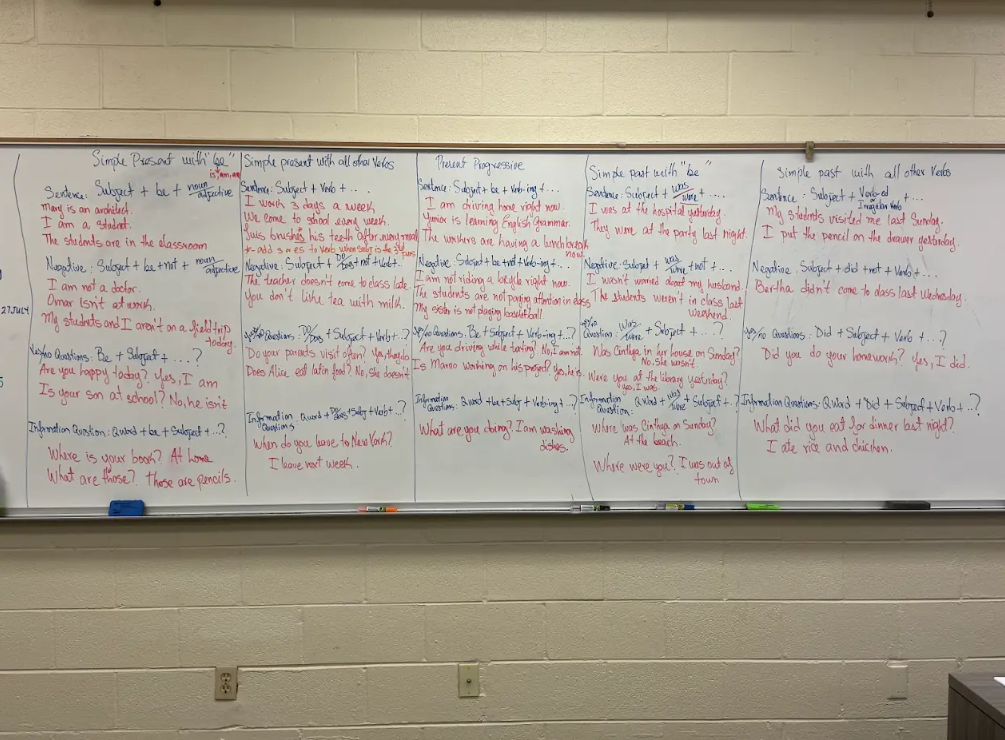 Simple Present with "be"
is, am, are
Sentence: Subject + be + noun
adjective
Mary is an architect.
I am a student.
The students are in the classroom
Negative: Subject + be + not + noun
adjective
I am not a doctor.
Omar isn't at work.
My students and I aren't on a field trip
today.
Yes/no Questions: Be + Subject + ...?
Are you happy today? Yes, I am
Is your son at school? No, he isn't
Information Question: Q word + be + Subject + ...?
Where is your book? At home
What are those? Those are pencils.
27 July
Simple present with all other Verbs
Sentence: Subject + Verb + ...
I work 3 days a week
We come to school every week.
Luis brushes his teeth after every meal
* add s or es to verb when subj is the 3rd
Negative: Subject + Do/Does + not + Verb + ...
The teacher doesn't come to class late.
You don't like tea with milk.
yes/no Questions: Do/Does + Subject + Verb + ...?
Do your parents visit often? Yes, they do
Does Alice eat latin food? No, she doesn't
Information Q word + Do/Does + Subj + Verb + ...?
Questions
When do you leave to New York?
I leave next week.
Present Progressive
Sentence: Subject + be + Verb-ing + ...
I am driving home right now.
Yunior is learning English Grammar.
The workers are having a lunch break
now.
Negative: Subject + be + not + Verb-ing + ...
I am not riding a bicycle right now.
The students are not paying attention in class
My sister is not playing basketball.
yes/no Questions: Be + Subject + Verb-ing + ...?
Are you driving while texting? No, I am not
Is Marco working on his project? yes, he is.
Information
Questions: Q word + be + Subj + Verb-ing + ...?
What are you doing? I am washing
dishes.
Simple past with "be"
Sentence: Subject + was/were + ...
I was at the hospital yesterday.
They were at the party last night.
Negative: Subject + was/were + not + ...
I wasn't worried about my husband.
The students weren't in class last
weekend.
yes/no
Question Was/Were + Subject + ...?
Was Cinthya in her house on Sunday?
No, she wasn't.
Were you at the library yesterday?
Yes, I was.
Information
Question: Q word + was/were + Subject + ...?
Where was Cinthya on Sunday?
At the beach.
Where were you? I was out of
town
Simple past with all other Verbs
Sentence: Subject + Verb-ed + ...
or
Irregular verb
My students visited me last Sunday.
I put the pencil on the drawer yesterday.
Negative: Subject + did + not + Verb + ...
Bertha didn't come to class last Wednesday.
yes/no Questions: Did + Subject + Verb + ...?
Did you do your homework? Yes, I did.
Information Questions: Q word + Did + Subject + Verb + ...?
What did you eat for dinner last night?
I ate rice and chicken.